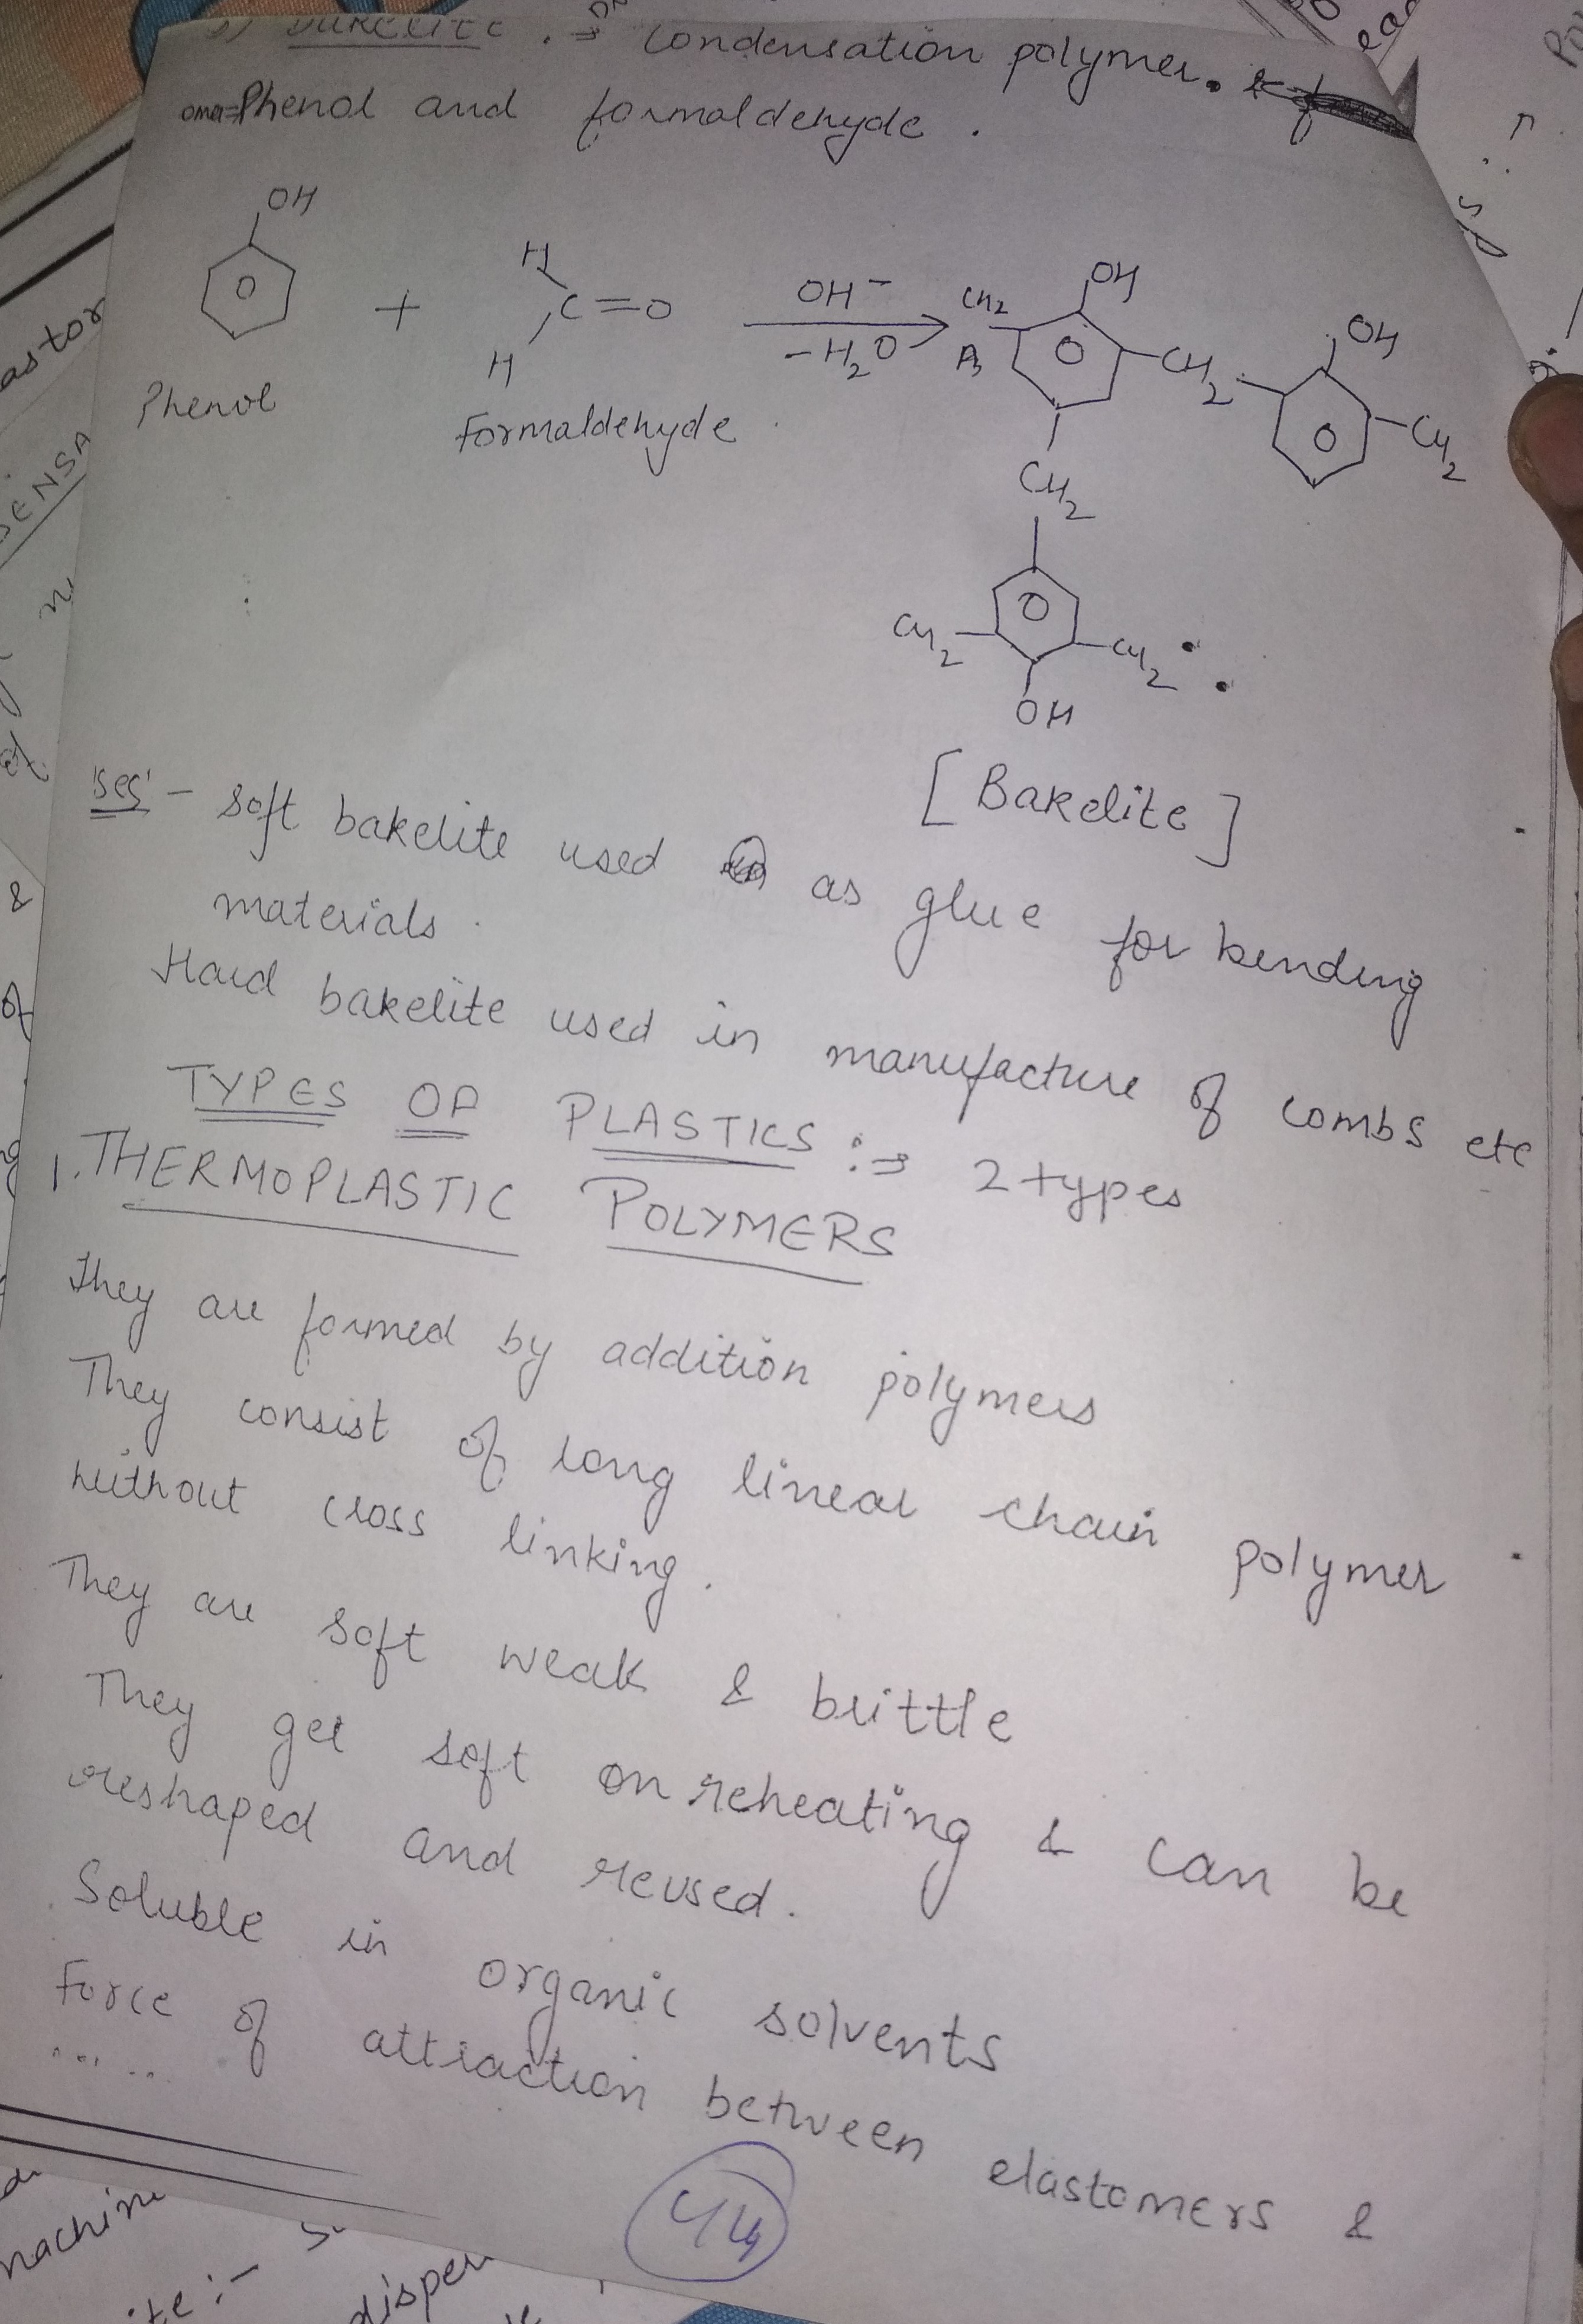 BAKELITE . ⇒ Condensation polymer.
Phenol and formaldehyde .
OH
Phenol
+
H
C=O
H
Formaldehyde
OH⁻
-H₂O
CH₂
OH
CH₂
OH
CH₂
CH₂
CH₂
CH₂
OH
[Bakelite]
ses - Soft bakelite used as glue for bending
materials.
Hard bakelite used in manufacture of combs etc
TYPES OF PLASTICS :⇒ 2 types
1. THERMOPLASTIC POLYMERS
They are formed by addition polymers
They consist of long linear chain polymer
without cross linking.
They are soft weak & brittle
They get soft on reheating & can be
reshaped and reused.
Soluble in organic solvents
Force of attraction between elastomers &
44
astor
ENSA
n
&
of
machine
ite :-
disper